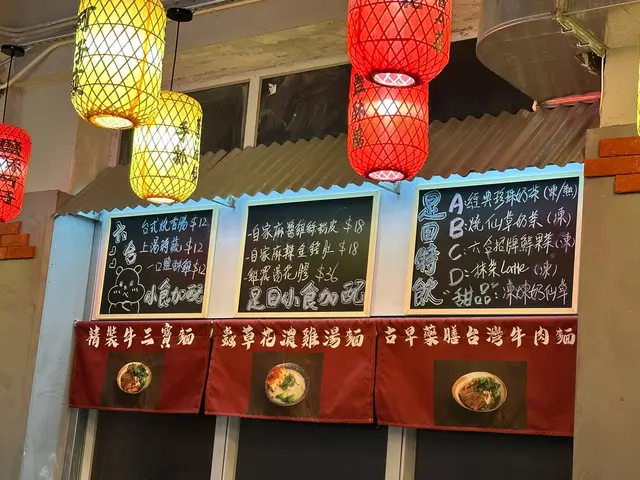 六合
台式炆香腸 $12
上湯時蔬 $12
一口鹽酥雞 $12
小食加配
自家麻醬雞絲粉皮 $18
自家麻辣豆 $18
雞濃湯花膠 $36
是日小食加配
是日特飲
A:經典珍珠奶茶(凍/熱)
B:燒仙草奶茶(凍)
C:六合招牌鮮果茶(凍)
D:抹茶Latte (凍)
甜品:凍燉奶仙草
精裝牛三寶麵
蟲草花濃雞湯麵
古早藥膳台灣牛肉麵